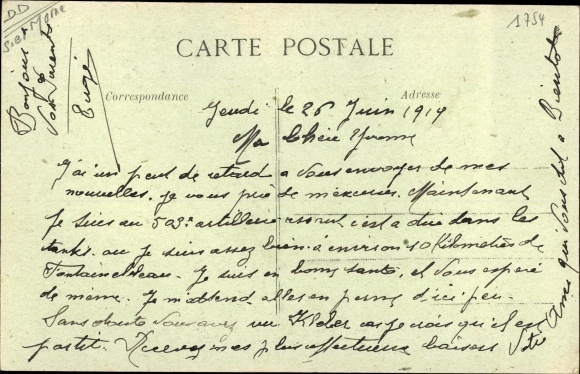 DD
1754
CARTE POSTALE
Correspondance
Adresse
Jeudi le 26 Juin 1919
Ma Chère Yvonne
J'ai un peut de retard a vous envoyer de mes
nouvelles. je vous prie de m'excuser. Maintenant
Je suis au 503e artillerie c'est a dire dans les
tanks. ou je suis assez bien à environ 10 kilomètres de
Fontainebleau. Je suis en bonne santé, et vous espère
de même. Je m'attend allez en perme d'ici peu.
Sans doute vous avez vu car je crois qu'il est
partit. Recevez mes plus affectueux baisers
Ami qui vous dit a Bientot
Bonjour a
Vos Parents